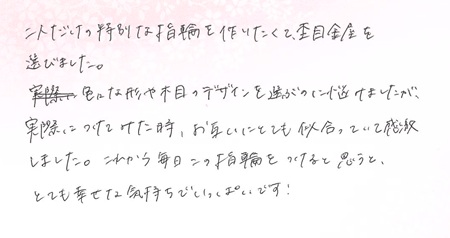 二人だけの特別な指輪を作りたくて、杢目金屋を
選びました。
色々な形や木目のデザインを選ぶのに悩みましたが、
実際につけてみた時、お互いにとても似合っていて感激
しました。これから毎日この指輪をつけると思うと、
とても幸せな気持ちでいっぱいです！